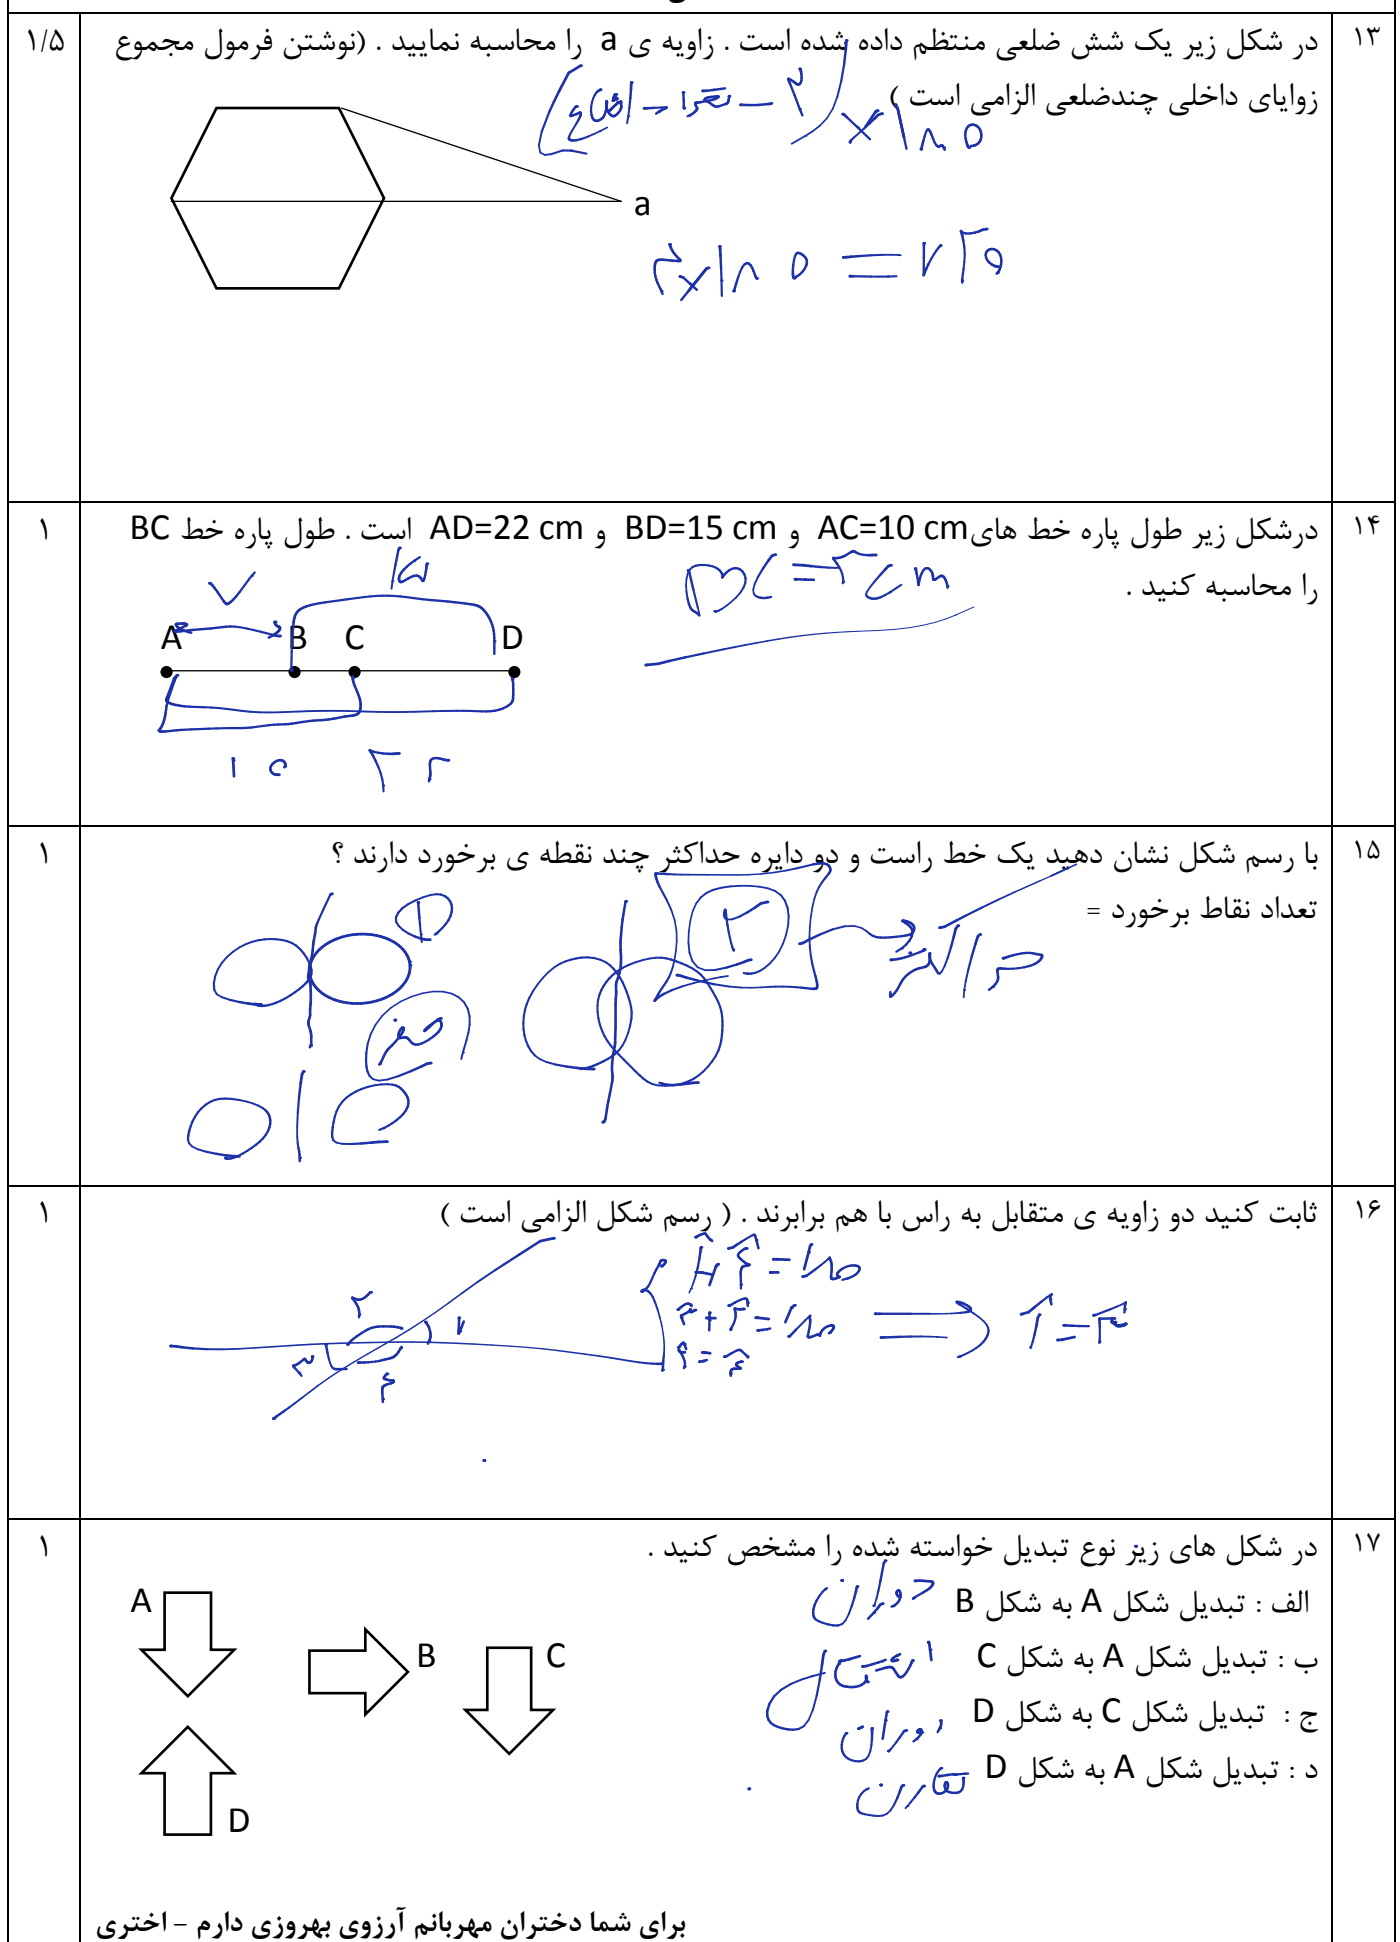 ۱۳
در شکل زیر یک شش ضلعی منتظم داده شده است . زاویه ی a را محاسبه نمایید . (نوشتن فرمول مجموع
۱/۵
زوایای داخلی چندضلعی الزامی است )
(۲ −
× ۱۸۰
a
۴×۱۸۰ = ۷۲۰
۱۴
درشکل زیر طول پاره خط های AC=10 cm و BD=15 cm و AD=22 cm است . طول پاره خط BC
۱
را محاسبه کنید .
BC = ۳ cm
۷ ۱۵
A B C D
۱۰ ۲۲
۱۵
با رسم شکل نشان دهید یک خط راست و دو دایره حداکثر چند نقطه ی برخورد دارند ؟
۱
تعداد نقاط برخورد =
۱
۲
حداکثر
صفر
۱۶
ثابت کنید دو زاویه ی متقابل به راس با هم برابرند . ( رسم شکل الزامی است )
۱
۲ ۱
۳ ۴
= ۱۸۰
۳ + ۲ = ۱۸۰
۱ = ۳
۱۷
در شکل های زیر نوع تبدیل خواسته شده را مشخص کنید .
۱
الف : تبدیل شکل A به شکل B دوران
ب : تبدیل شکل A به شکل C انتقال
ج : تبدیل شکل C به شکل D دوران
د : تبدیل شکل A به شکل D تقارن
A
B
C
D
برای شما دختران مهربانم آرزوی بهروزی دارم - اختری